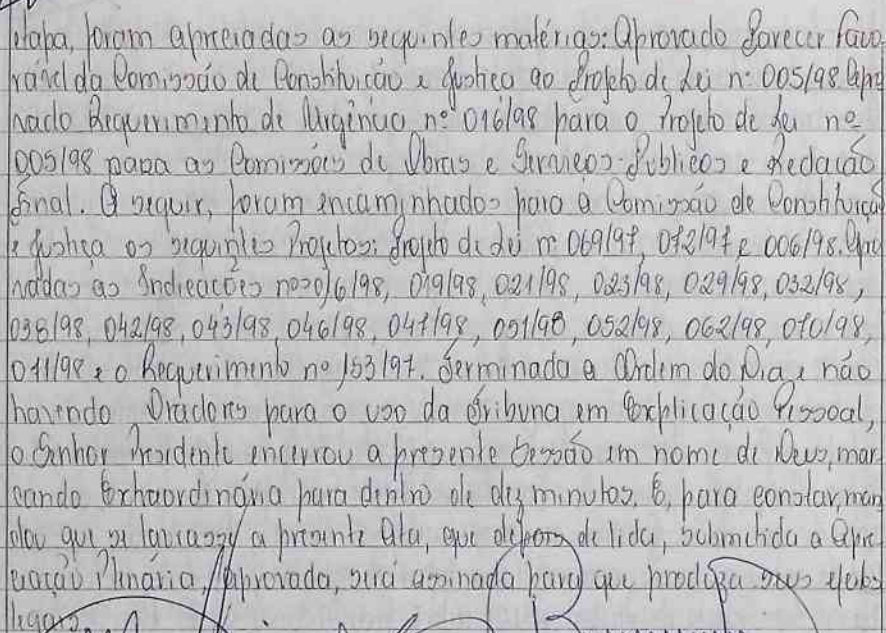 etapa, foram apreciadas as seguintes matérias: Aprovado Parecer Favo
rável da Comissão de Constituição e Justiça ao Projeto de Lei nº 005/98. Apro
vado Requerimento de Urgência nº 016/98 para o Projeto de Lei nº
005/98 para as Comissões de Obras e Serviços Públicos e Redação
Final. A seguir, foram encaminhados para a Comissão de Constituição
e Justiça os seguintes Projetos: Projeto de Lei nº 069/97, 072/97 e 006/98. Apro
vadas as Indicações nºs 016/98, 019/98, 021/98, 023/98, 029/98, 032/98,
038/98, 042/98, 043/98, 046/98, 047/98, 051/98, 052/98, 062/98, 070/98,
071/98 e o Requerimento nº 153/97. Terminada a Ordem do Dia e não
havendo Oradores para o uso da Tribuna em Explicação Pessoal,
o Senhor Presidente encerrou a presente Sessão em nome de Deus, mar
cando Extraordinária para dentro de dez minutos. E, para constar, man
dou que se lavrasse a presente Ata, que depois de lida, submetida a Apre
ciação Plenária, aprovada, será assinada para que produza seus efeitos
legais